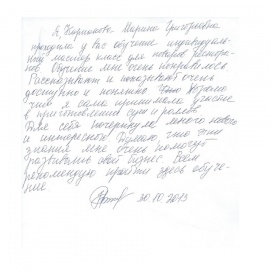 Я Кирпикова Марина Григорьевна
прошла у вас обучение индивидуаль-
ный мастер класс для повара ресторо-
нов Обучение мне очень понравилось
Рассказывают и показывают очень
доступно и понятно
что я сама принимала участие
в приготовлении суши и роллов
Для себя почерпнула много нового
и интересного Думаю, что эти
знания мне очень помогут
развивать свой бизнес Всем
рекомендую пройти здесь обуче-
ние
30.10 2013